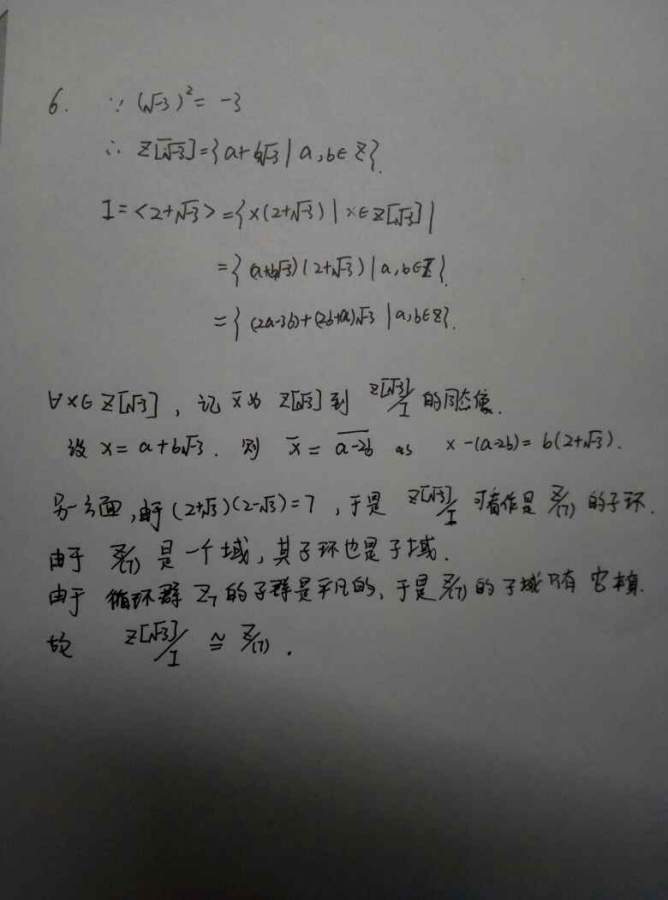 6. ∵ (√-3)² = -3
∴ Z[√-3] = {a+b√-3 | a,b∈Z}.
I = <2+√-3> = {x(2+√-3) | x∈Z[√-3]|
= {(a+b√-3)(2+√-3) | a,b∈Z}.
= {(2a-3b)+(2b+a)√-3 | a,b∈Z}.
∀x∈Z[√-3], 记 x̄ 为 Z[√-3] 到 Z[√-3]/I 的同态像.
设 x = a+b√-3. 则 x̄ = \overline{a-2b} as x-(a-2b) = b(2+√-3).
另一方面, 由于 (2+√-3)(2-√-3)=7, 于是 Z[√-3]/I 可看作是 Z/(7) 的子环.
由于 Z/(7) 是一个域, 其子环也是子域.
由于 循环群 Z₇ 的子群是平凡的, 于是 Z/(7) 的子域只有它本身.
故 Z[√-3]/I ≅ Z/(7).